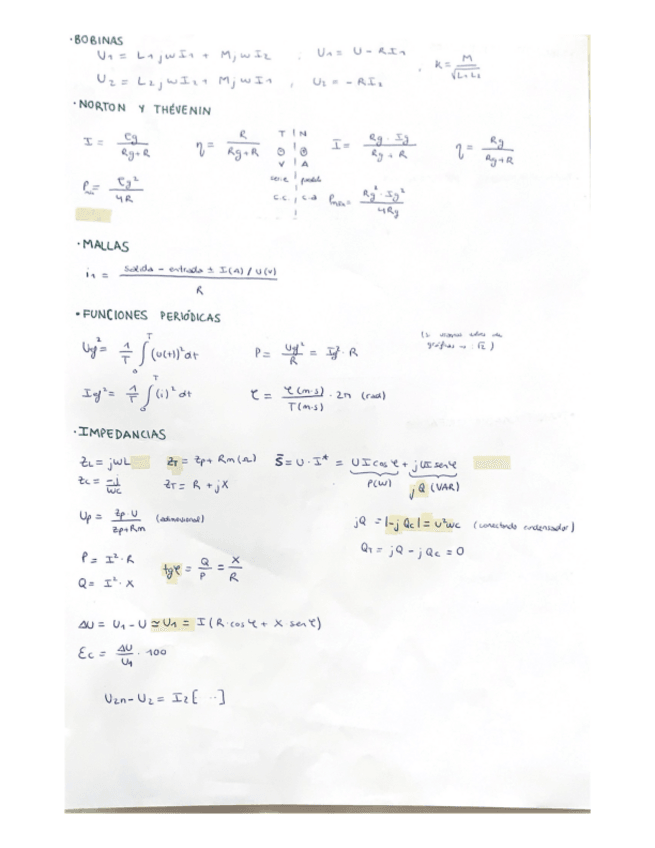 · BOBINAS
U₁ = L₁jωI₁ + MjωI₂ ; U₁ = U - RI₁ , K = M/√(L₁·L₂)
U₂ = L₂jωI₂ + MjωI₁ , U₂ = -RI₂
· NORTON Y THÉVENIN
I = Eg/(Rg+R) η = R/(Rg+R) T | N I = Rg·Ig/(Rg+R) η = Rg/(Rg+R)
V | A
serie | paralelo
P = Eg²/4R c.c. Pmáx = Rg²·Ig²/4Rg
· MALLAS
i₁ = (salida - entrada ± I(A)/U(V))/R
· FUNCIONES PERIÓDICAS
Uef² = 1/T ∫₀ᵀ (u(t))² dt P = Uef²/R = Ief²·R
Ief² = 1/T ∫₀ᵀ (i)² dt φ = φ(m·s)/T(m·s) · 2π (rad)
· IMPEDANCIAS
ZL = jωL ZT = Zp + Rm(Ω) S̄ = U·I* = UIcosφ + jUIsenφ
Zc = -j/ωc ZT = R + jX P(W) jQ (VAR)
Up = Zp·U/(Zp+Rm) (adimensional) jQ = |-jQc| = U²ωc (conectando condensador)
P = I²·R tgφ = Q/P = X/R QT = jQ - jQc = 0
Q = I²·X
ΔU = U₁ - U ≃ U₁ = I(R·cosφ + X·senφ)
Ɛc = ΔU/U₁ · 100
U₂n - U₂ = I₂[ ··]